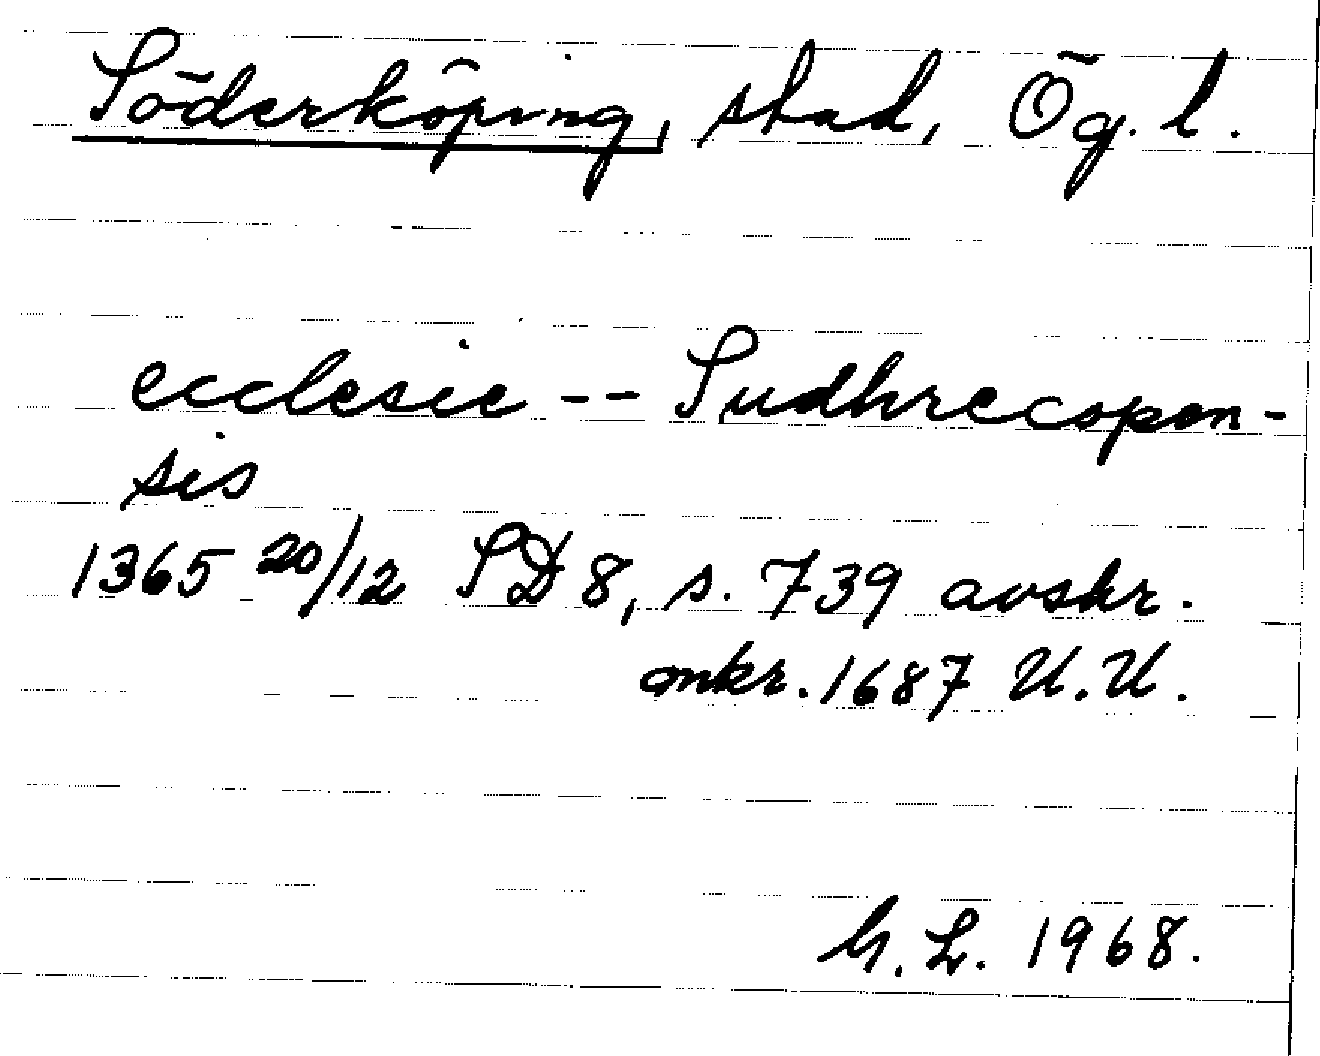 Söderköping, stad, Ög. l.
ecclesie -- Sudhrecopen-
sis
1365 20/12 SD 8, s. 739 avskr.
omkr. 1687 U.U.
G. L. 1968.